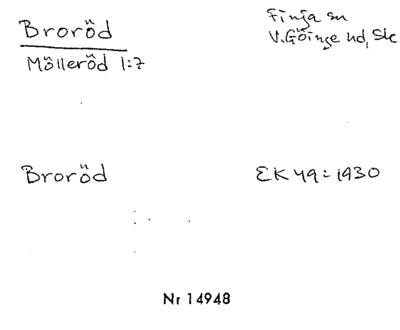 Broröd
Mölleröd 1:7
Finja sn
V. Göinge hd, Sk
Broröd
EK 49 = 1930
Nr 14948